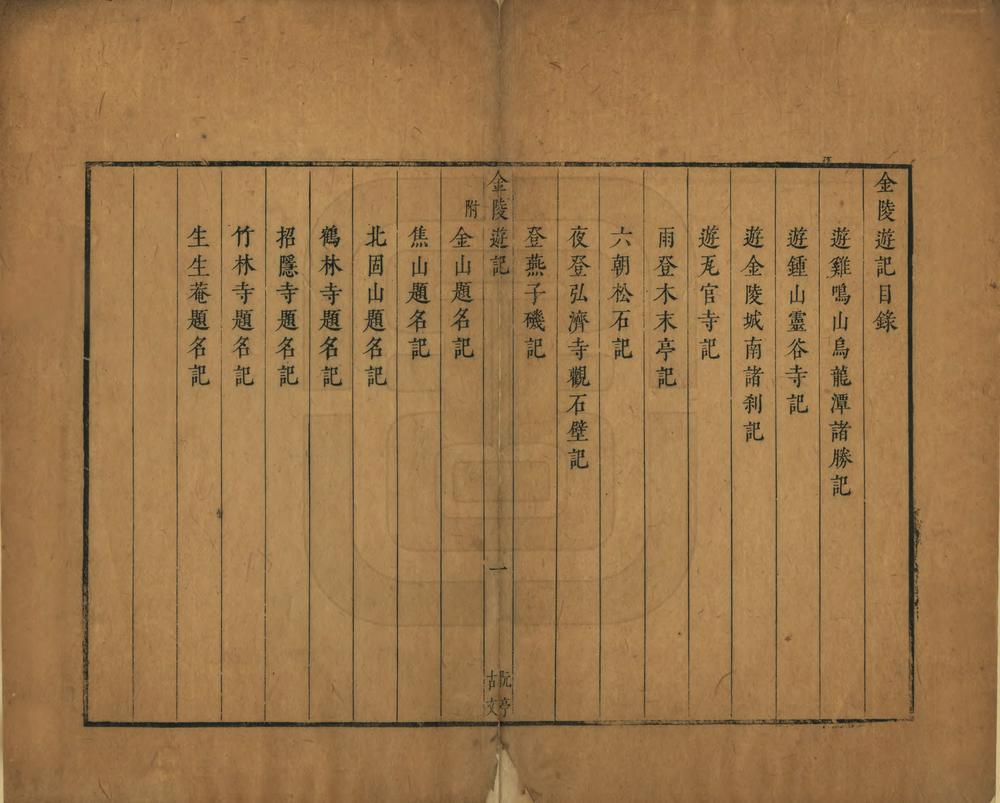 金陵遊記目錄
遊雞鳴山烏龍潭諸勝記
遊鍾山靈谷寺記
遊金陵城南諸刹記
遊瓦官寺記
雨登木末亭記
六朝松石記
夜登弘濟寺觀石壁記
登燕子磯記
金陵遊記
一
阮亭
古文
附
金山題名記
焦山題名記
北固山題名記
鶴林寺題名記
招隱寺題名記
竹林寺題名記
生生菴題名記